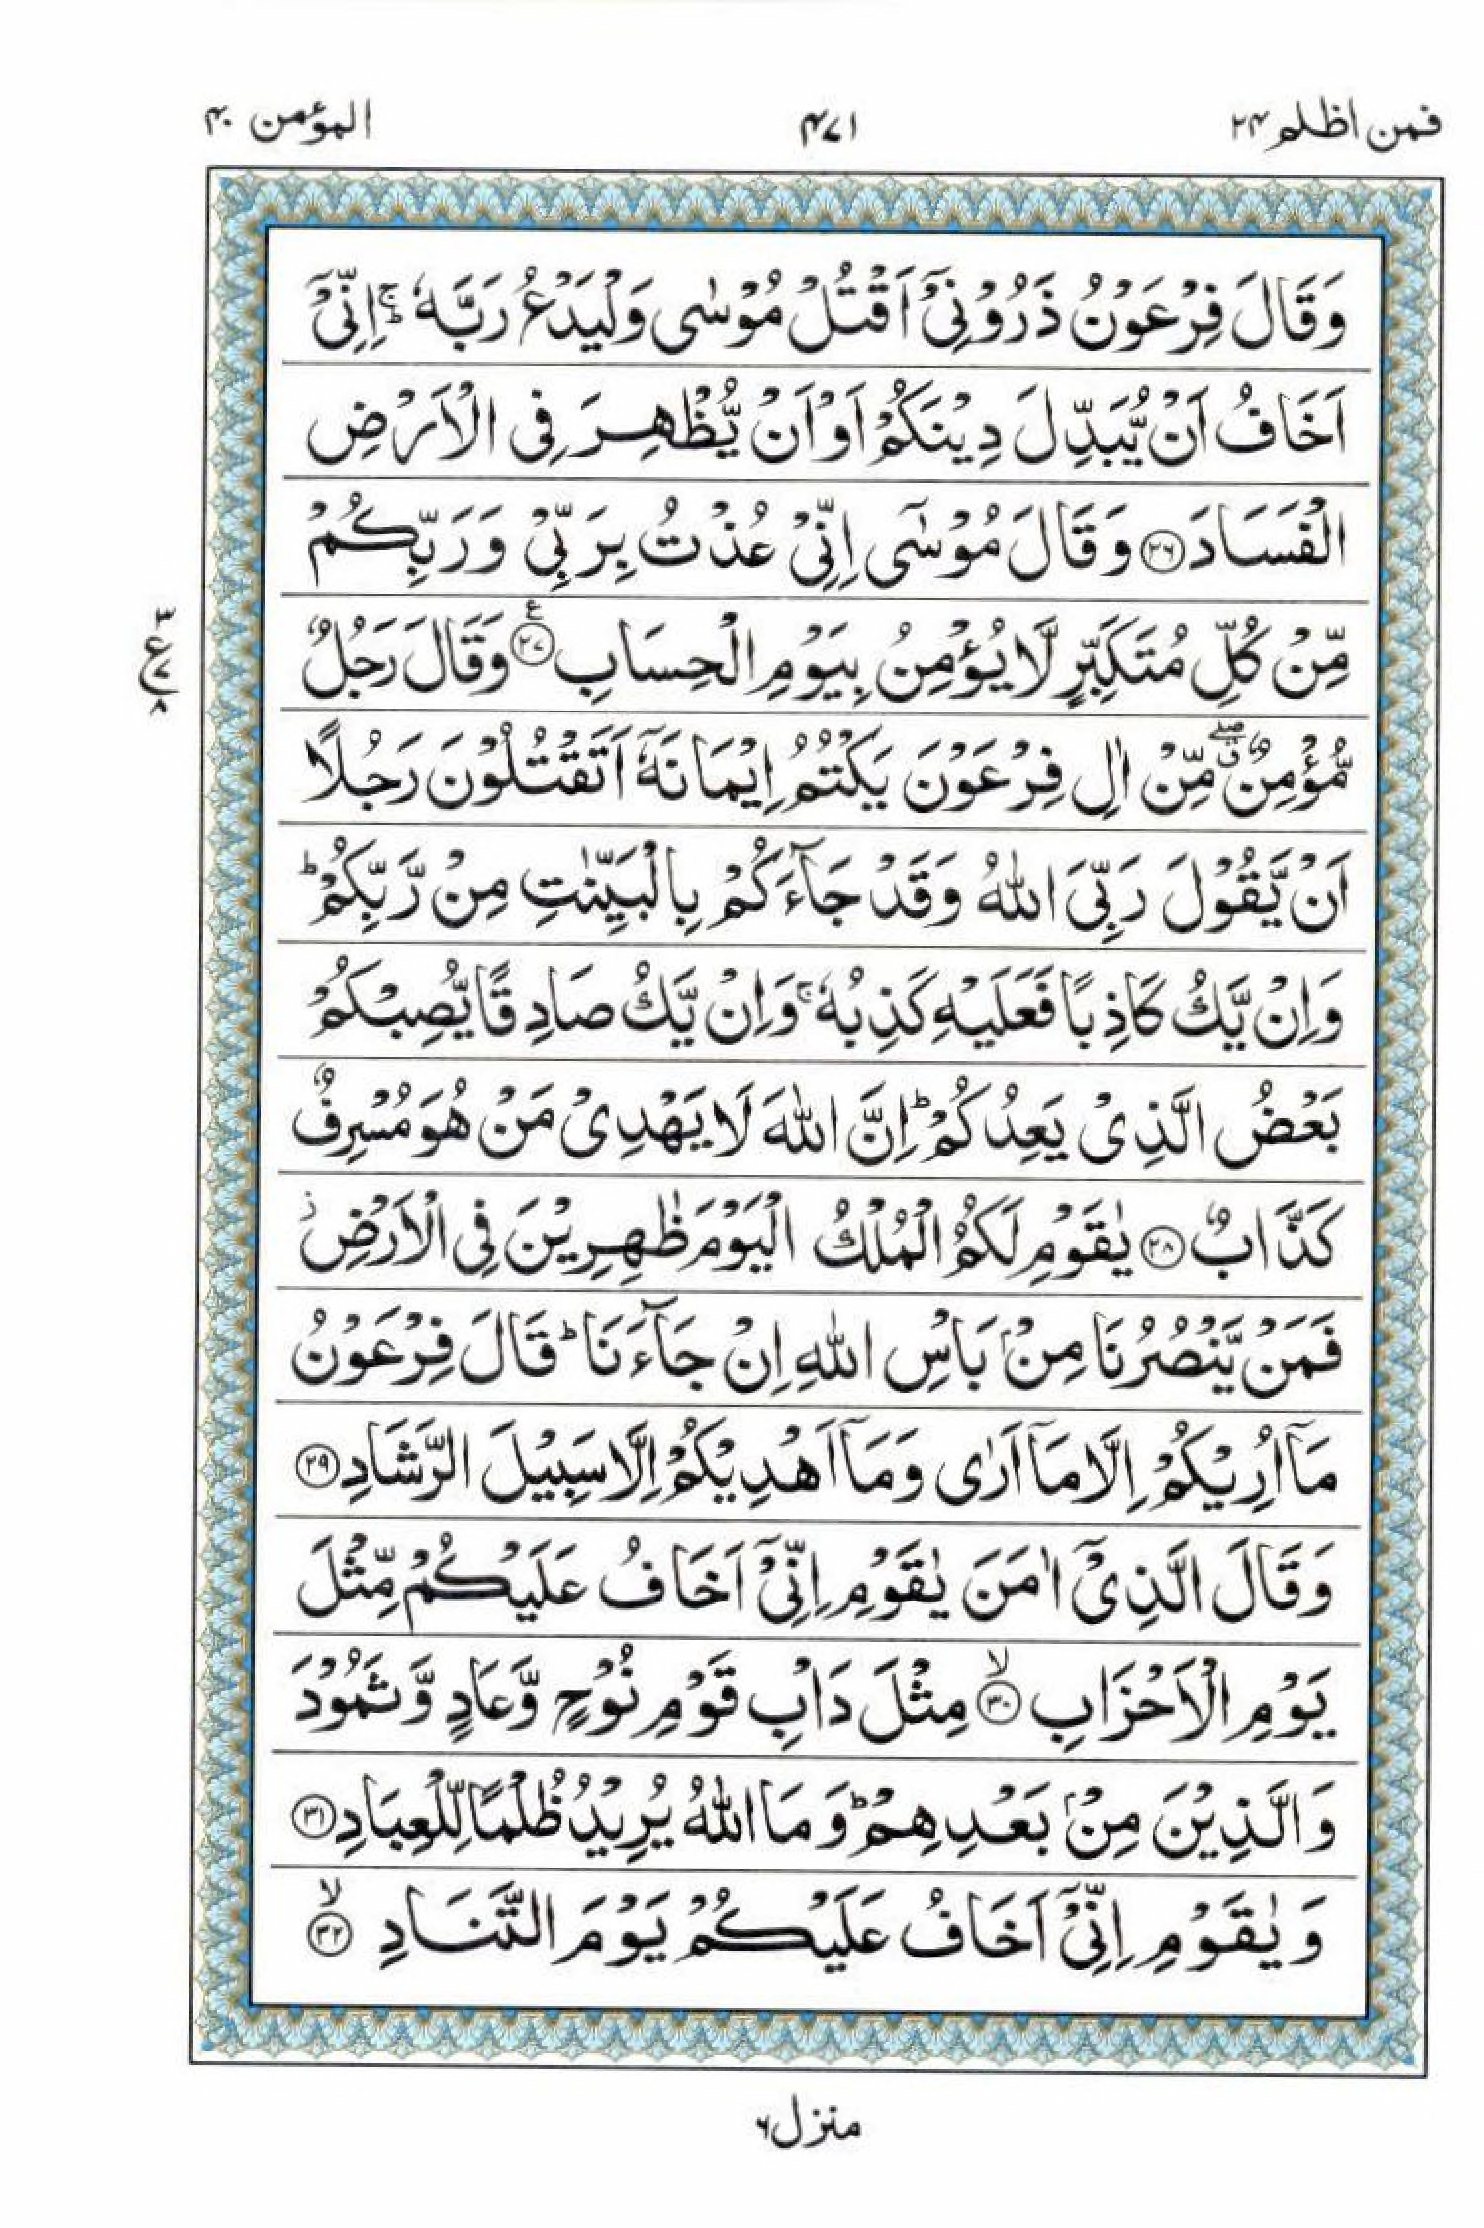 فمن اظلم ٢٤
٤٧١
المؤمن ٤٠
وَقَالَ فِرْعَوْنُ ذَرُوْنِیْۤ اَقْتُلْ مُوْسٰی وَلْیَدْعُ رَبَّهٗ ۚؕ اِنِّیْۤ
اَخَافُ اَنْ یُّبَدِّلَ دِیْنَكُمْ اَوْ اَنْ یُّظْهِرَ فِی الْاَرْضِ
الْفَسَادَ ﴿۲۶﴾ وَقَالَ مُوْسٰۤی اِنِّیْ عُذْتُ بِرَبِّیْ وَرَبِّكُمْ
مِّنْ كُلِّ مُتَكَبِّرٍ لَّا یُؤْمِنُ بِیَوْمِ الْحِسَابِ ﴿۲۷﴾ ع وَقَالَ رَجُلٌ
مُّؤْمِنٌ ۖۗ مِّنْ اٰلِ فِرْعَوْنَ یَكْتُمُ اِیْمَانَهٗۤ اَتَقْتُلُوْنَ رَجُلًا
اَنْ یَّقُوْلَ رَبِّیَ اللّٰهُ وَقَدْ جَآءَكُمْ بِالْبَیِّنٰتِ مِنْ رَّبِّكُمْ ؕ
وَاِنْ یَّكُ كَاذِبًا فَعَلَیْهِ كَذِبُهٗ ۚ وَاِنْ یَّكُ صَادِقًا یُّصِبْكُمْ
بَعْضُ الَّذِیْ یَعِدُكُمْ ؕ اِنَّ اللّٰهَ لَا یَهْدِیْ مَنْ هُوَ مُسْرِفٌ
كَذَّابٌ ﴿۲۸﴾ یٰقَوْمِ لَكُمُ الْمُلْكُ الْیَوْمَ ظٰهِرِیْنَ فِی الْاَرْضِ ز
فَمَنْ یَّنْصُرُنَا مِنْۢ بَاْسِ اللّٰهِ اِنْ جَآءَنَا ؕ قَالَ فِرْعَوْنُ
مَاۤ اُرِیْكُمْ اِلَّا مَاۤ اَرٰی وَمَاۤ اَهْدِیْكُمْ اِلَّا سَبِیْلَ الرَّشَادِ ﴿۲۹﴾
وَقَالَ الَّذِیْۤ اٰمَنَ یٰقَوْمِ اِنِّیْۤ اَخَافُ عَلَیْكُمْ مِّثْلَ
یَوْمِ الْاَحْزَابِ ﴿۳۰﴾ ۙ مِثْلَ دَاْبِ قَوْمِ نُوْحٍ وَّعَادٍ وَّثَمُوْدَ
وَالَّذِیْنَ مِنْۢ بَعْدِهِمْ ؕ وَمَا اللّٰهُ یُرِیْدُ ظُلْمًا لِّلْعِبَادِ ﴿۳۱﴾
وَیٰقَوْمِ اِنِّیْۤ اَخَافُ عَلَیْكُمْ یَوْمَ التَّنَادِ ﴿۳۲﴾ ۙ
٣
ع
٧
٨
منزل ٦